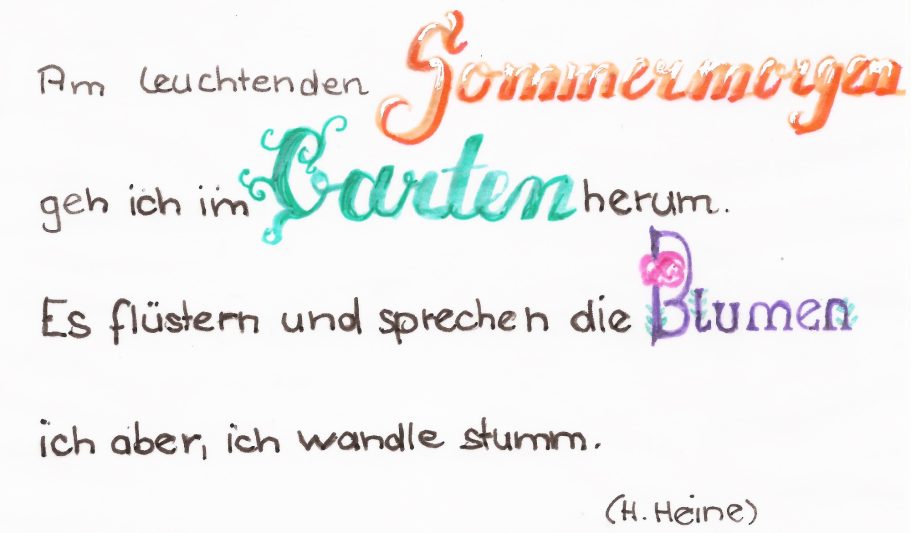 Am leuchtenden Sommermorgen
geh ich im Garten herum.
Es flüstern und sprechen die Blumen
ich aber, ich wandle stumm.
(H. Heine)